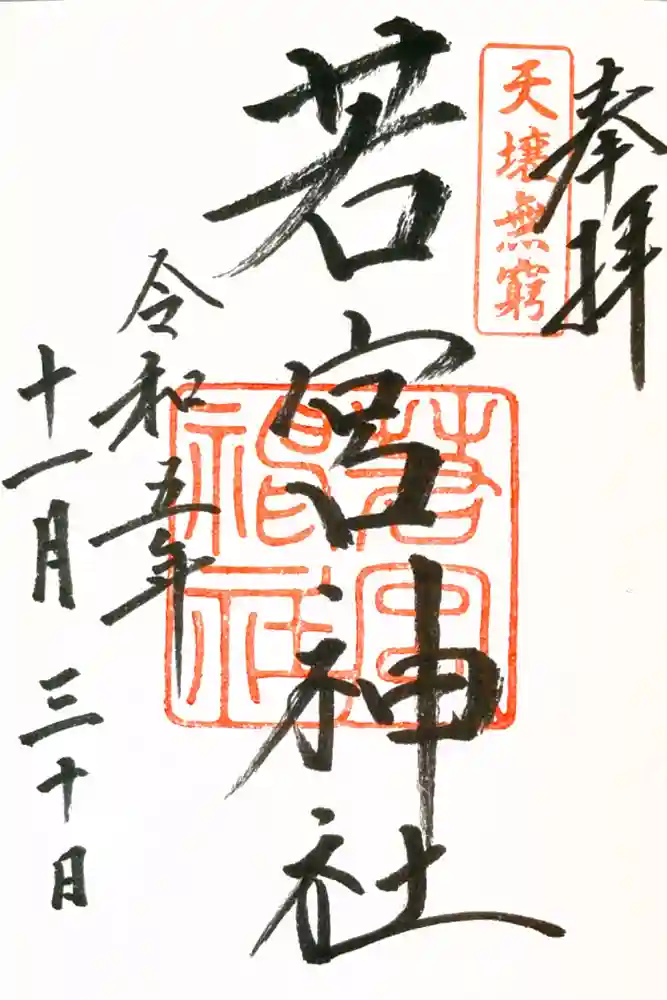 奉拝
天壌無窮
若宮神社
若宮
神社
令和五年
十一月三十日